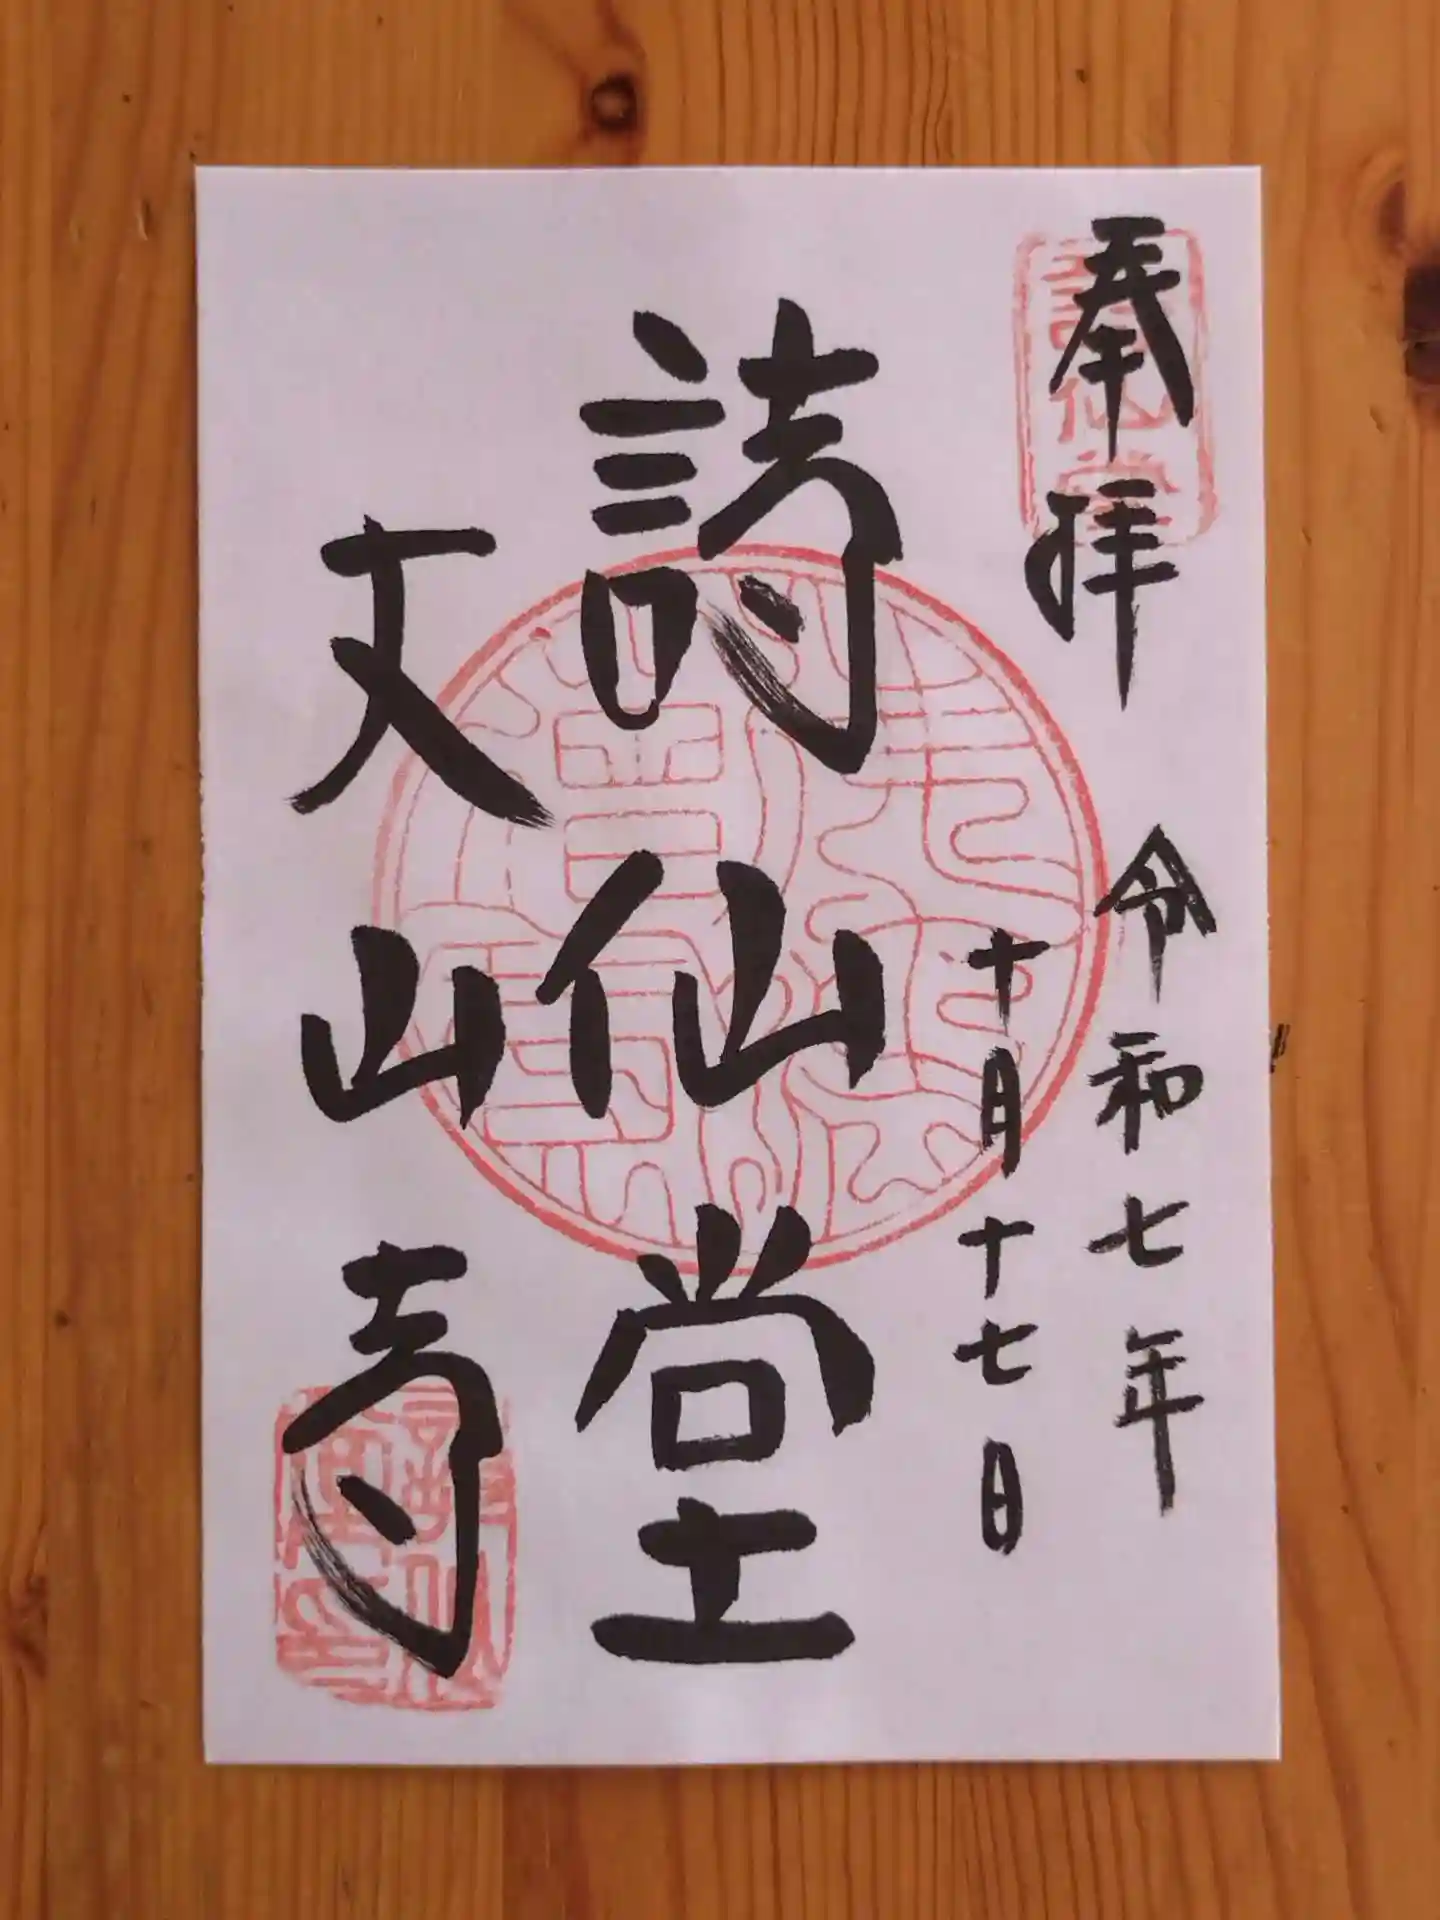 奉拝
詩仙堂
令和七年
十月十七日
詩仙堂
丈山寺